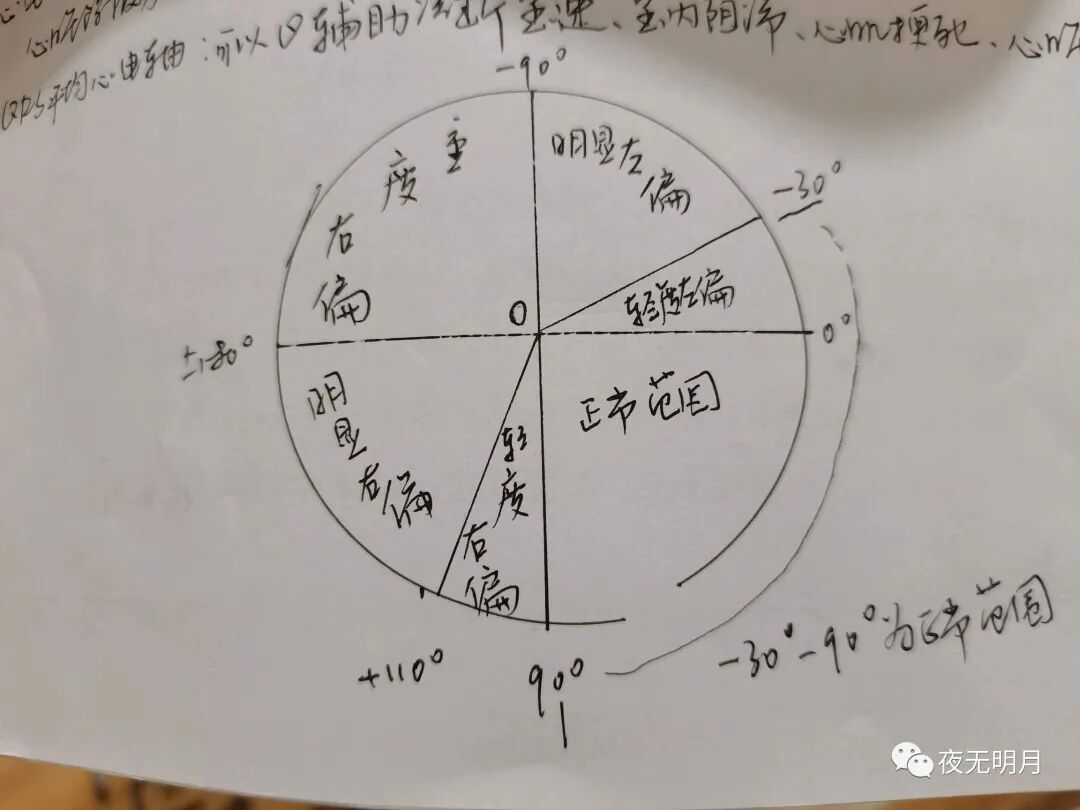 QRS平均心电轴:可以辅助诊断室速、室内阻滞、心肌梗死、
-90°
重度右偏
明显左偏
-30°
轻度左偏
0
0°
±180°
正常范围
明显右偏
轻度右偏
+110°
90°
-30°-90°为正常范围
夜无明月